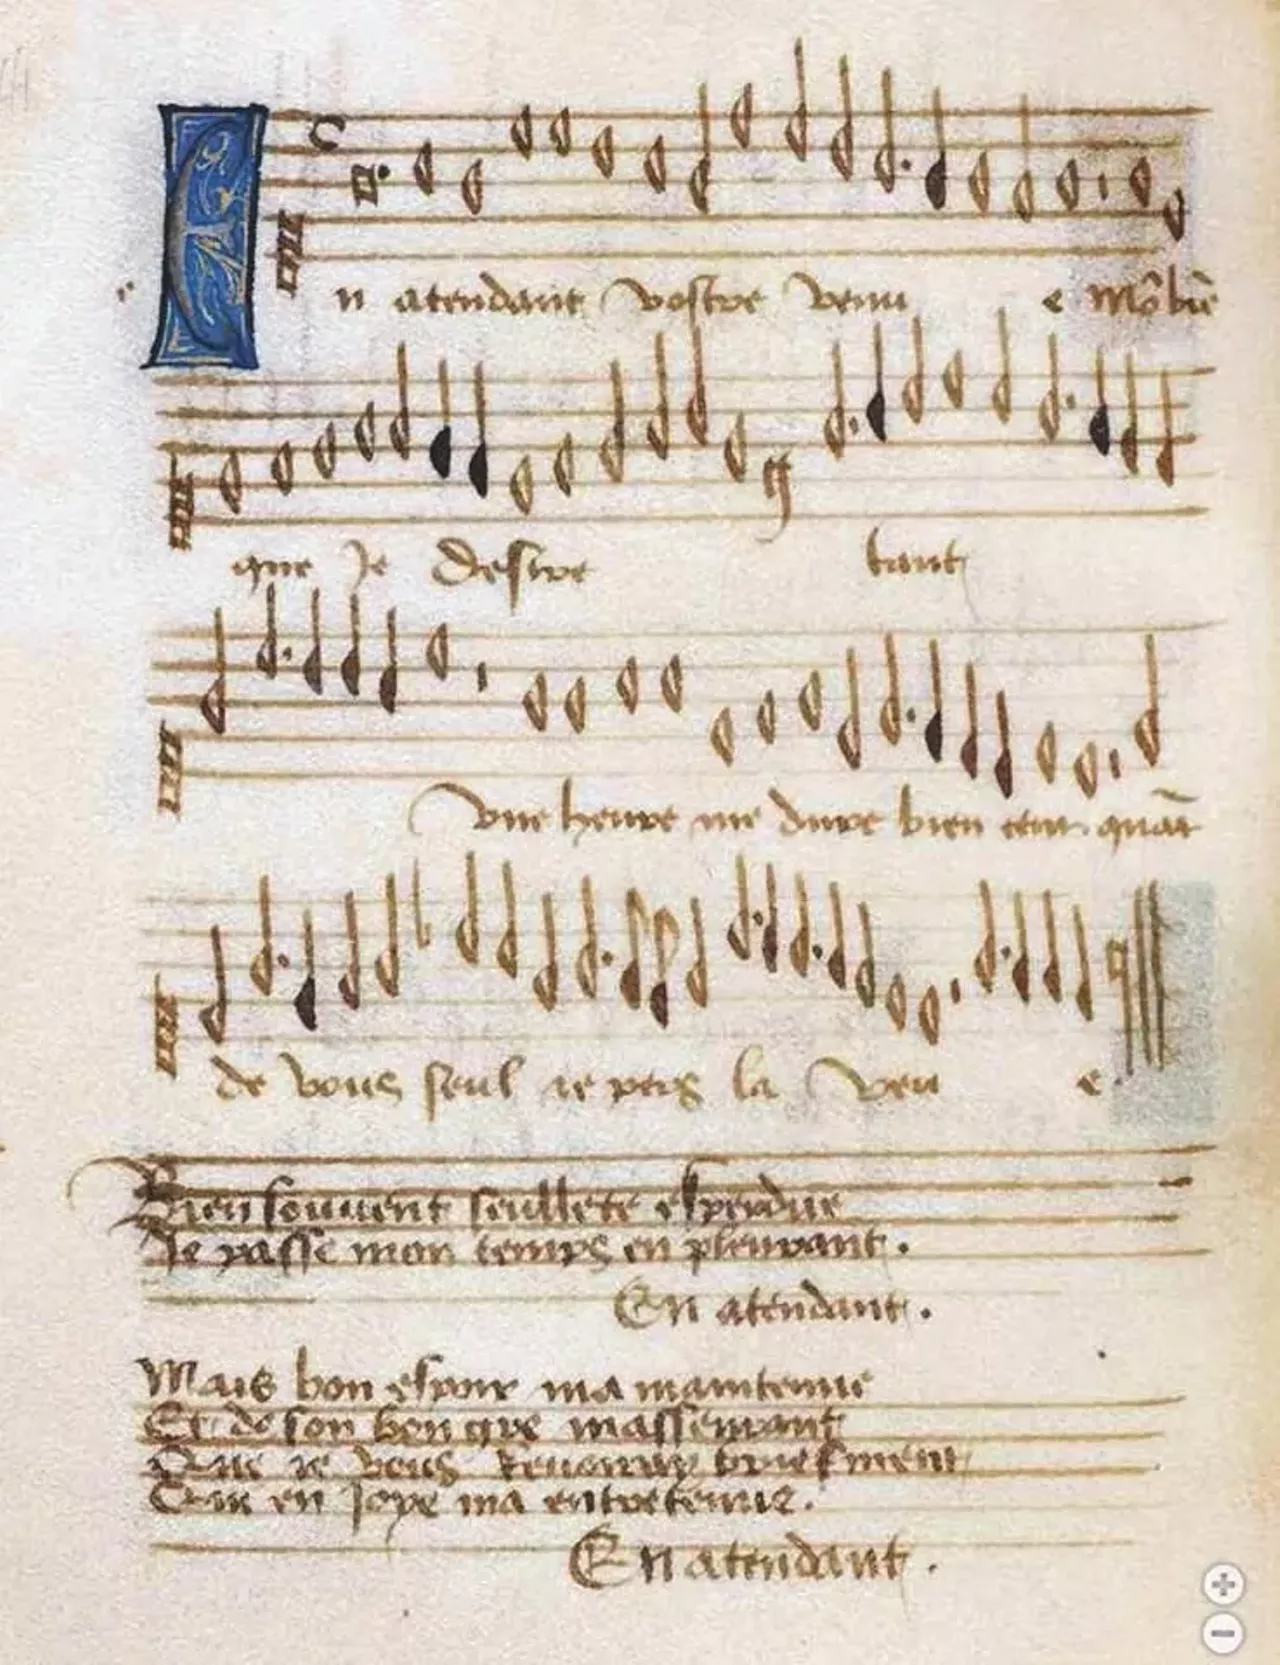 En atendant vostre venue Mõ biẽ
que Je desire tant
vne heure me dure bien cent quãt
de vous seul ie pers la veue
Bien souuent seullete esperdue
Je passe mon temps en pleurant.
En atendant.
Mais bon espoir ma maintenue
Et de son bon gre masseurant
Que ie vous Reuerray briefment
Qui en Joye ma entretenue.
En atendant.